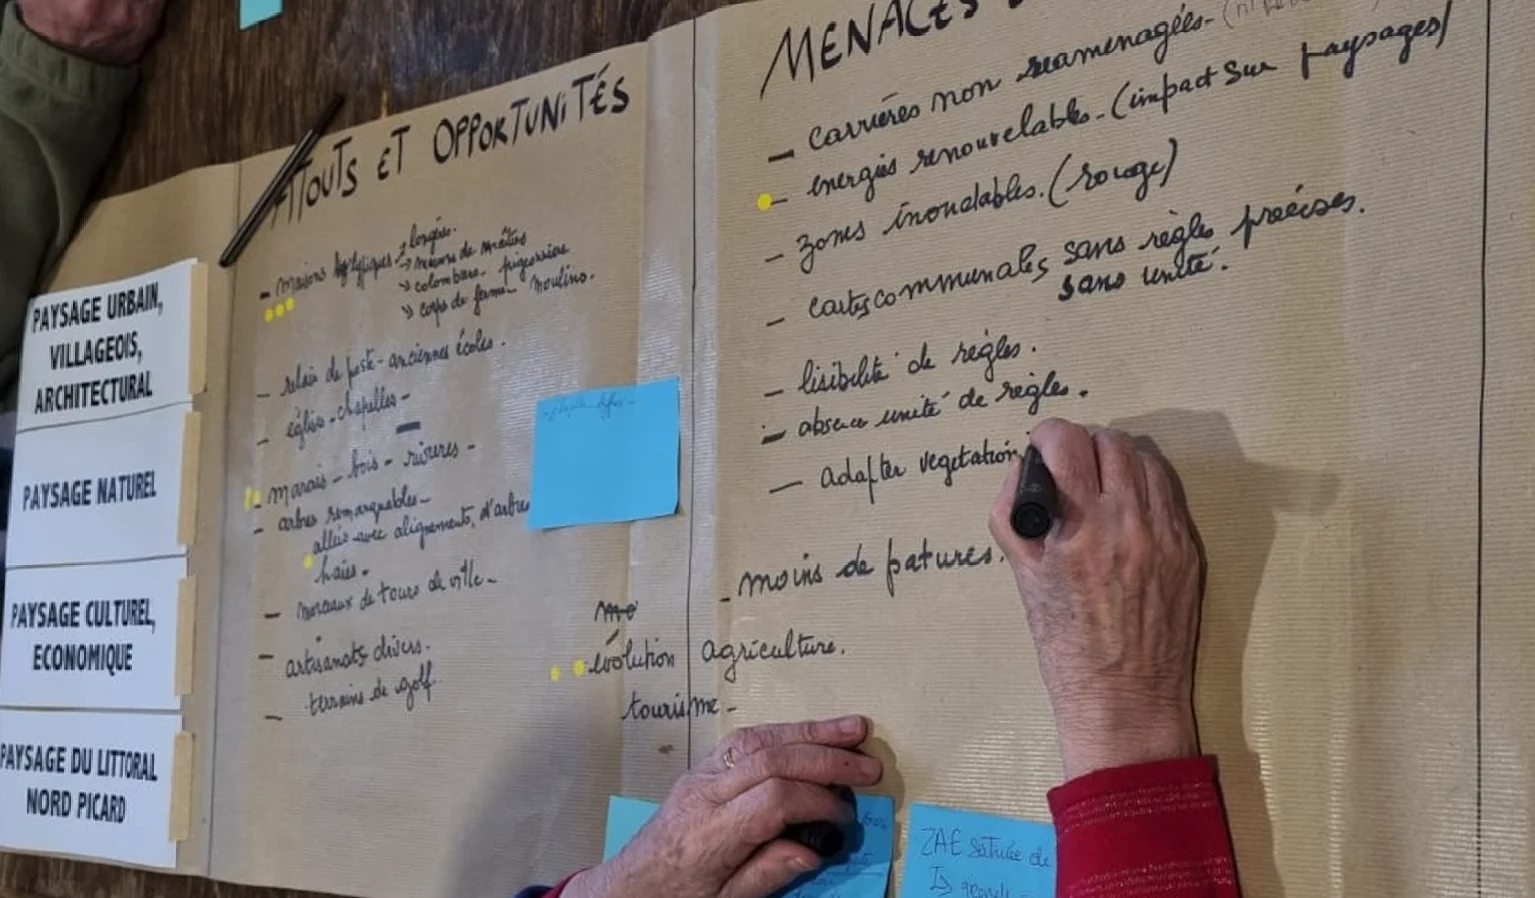 PAYSAGE URBAIN,
VILLAGEOIS,
ARCHITECTURAL
PAYSAGE NATUREL
PAYSAGE CULTUREL,
ECONOMIQUE
PAYSAGE DU LITTORAL
NORD PICARD
ATOUTS ET OPPORTUNITÉS
- maisons typiques → longères.
→ maisons de maîtres
→ colombiers - pigeonniers
→ corps de ferme - moulins.
- relais de poste - anciennes écoles.
- églises - chapelles -
- marais - bois - rivières -
- arbres remarquables -
allées avec alignements, d'arbres
haies -
- morceaux de tours de ville -
- artisanats divers.
- terrains de golf.
MENACES
- carrières non réaménagées -
- energies renouvelables - (impact sur paysages)
- zones inondables. (rouge)
- cartes communales sans règles précises.
sans unité.
- lisibilité de règles.
- absence unité de règles.
- adapter vegetation
- moins de patures.
- évolution agriculture.
tourisme -
ZAE saturée de